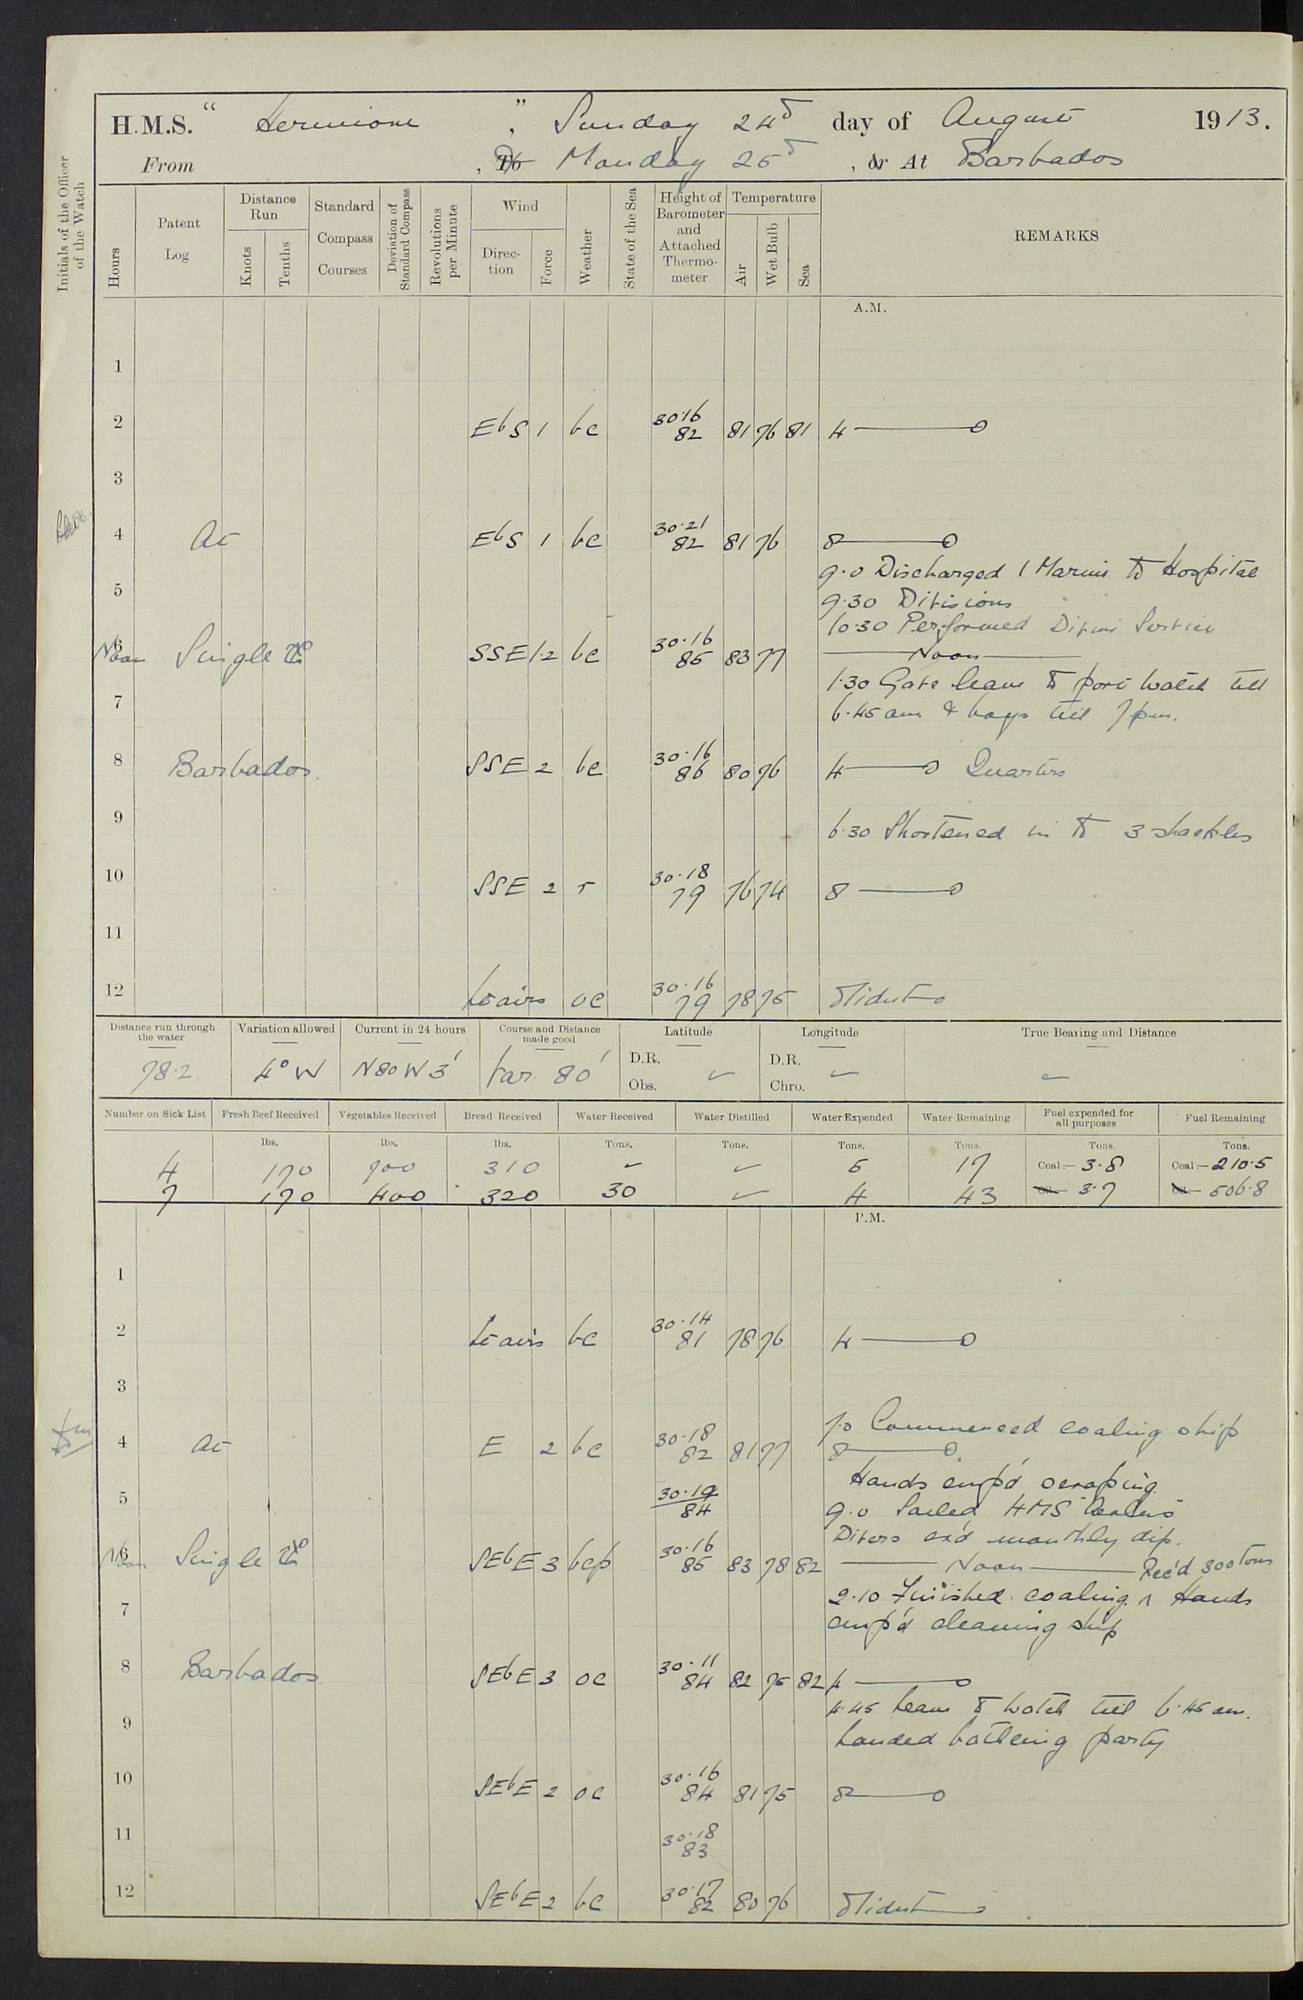 H.M.S. " Hermione ", Sunday 24th day of August 1913.
From , To Monday 25th , or At Barbados
Initials of the Officer of the Watch
Hours
Patent Log
Distance Run
Knots
Tenths
Standard Compass Courses
Deviation of Standard Compass
Revolutions per Minute
Wind
Direction
Force
Weather
State of the Sea
Height of Barometer and Attached Thermometer
Temperature
Air
Wet Bulb
Sea
REMARKS
A.M.
1
2 EbS 1 bc 30.16 82 81 76 81 4
3
4 At EbS 1 bc 30.21 82 81 76 8
9.0 Discharged 1 Marine to Hospital
5
9.30 Divisions
10.30 Performed Divine Service
6 Noon Single SSE 1/2 bc 30.16 85 83 77 Noon
1.30 Gave leave to port watch till
7
6.45 am & boys till 7 pm.
8 Barbados. SSE 2 bc 30.16 86 80 76 4 Quarters
9
6.30 Shortened in to 3 shackles
10 SSE 2 r 30.18 79 76 74 8
11
12 Lt airs oc 30.16 79 78 75 Midnt
Distance run through the water
Variation allowed
Current in 24 hours
Course and Distance made good
Latitude
Longitude
True Bearing and Distance
D.R.
Obs.
D.R.
Chro.
78.2 4° W N80W 3' Var. 80'
Number on Sick List
Fresh Beef Received
Vegetables Received
Bread Received
Water Received
Water Distilled
Water Expended
Water Remaining
Fuel expended for all purposes
Fuel Remaining
lbs. lbs. lbs. Tons. Tons. Tons. Tons. Tons. Tons.
4 170 310 5 17 Coal— 3.8 Coal— 210.5
7 170 400 320 30 4 43 Oil— 3.7 Oil— 506.8
P.M.
1
2 Lt airs bc 30.14 81 78 76 4
3
7.0 Commenced coaling ship
4 At E 2 bc 30.18 82 81 77 8
Hands emp'd scraping
5 30.19 84
9.0 Sailed HMS
Divers exd monthly dip.
6 Noon Single SEbE 3 bcp 30.16 85 83 78 82 Noon Rec'd 300 Tons
2.10 Finished coaling. Hands
7
emp'd cleaning ship
8 Barbados SEbE 3 oc 30.11 84 82 75 82 4
4.45 Leave to watch till 6.45 am.
9
Landed bathing party
10 SEbE 2 oc 30.16 84 81 75 8
11 30.18 83
12 SEbE 2 bc 30.17 82 80 76 Midnt